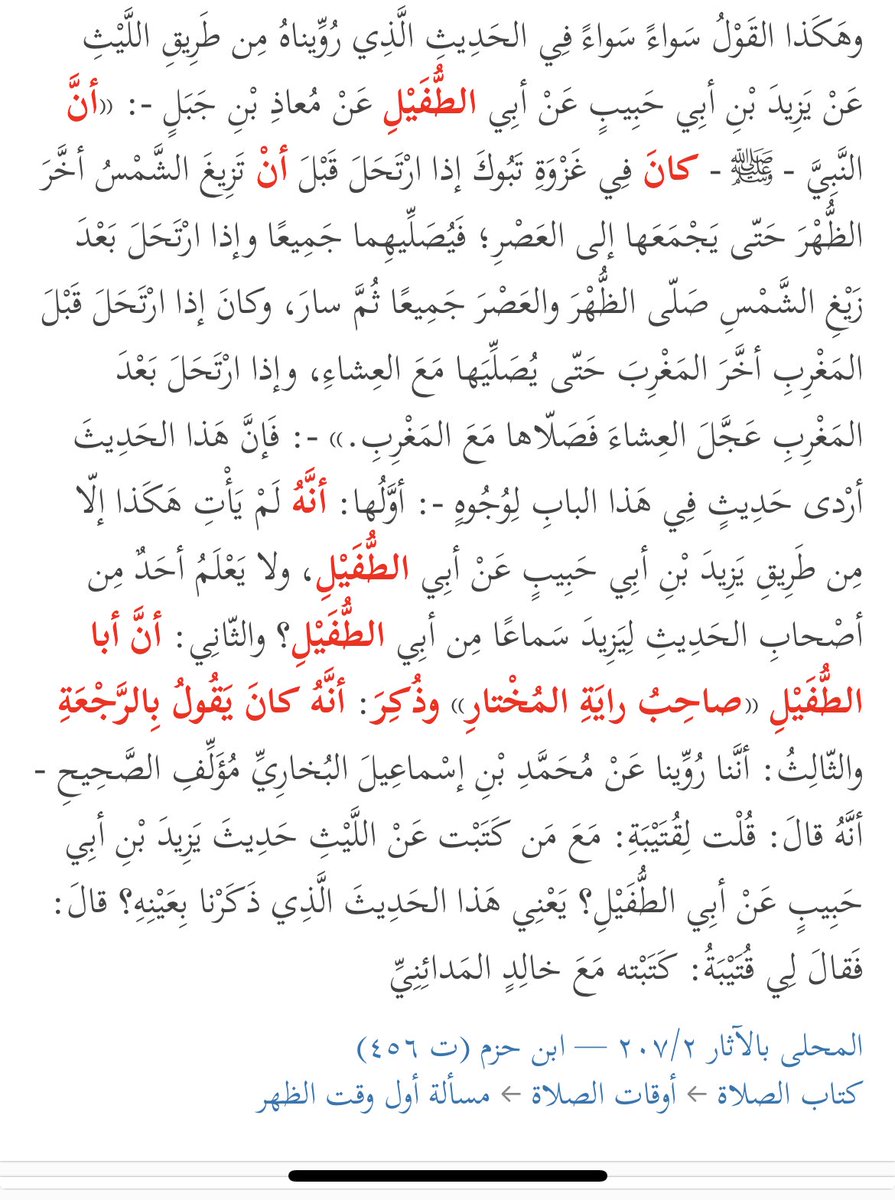 وهَكَذا القَوْلُ سَواءً سَواءً فِي الحَدِيثِ الَّذِي رُوِّيناهُ مِن طَرِيقِ اللَّيْثِ
عَنْ يَزِيدَ بْنِ أبِي حَبِيبٍ عَنْ أبِي الطُّفَيْلِ عَنْ مُعاذِ بْنِ جَبَلٍ -: «أنَّ
النَّبِيَّ - ﷺ - كانَ فِي غَزْوَةِ تَبُوكَ إذا ارْتَحَلَ قَبْلَ أنْ تَزِيغَ الشَّمْسُ أخَّرَ
الظُّهْرَ حَتّى يَجْمَعَها إلى العَصْرِ؛ فَيُصَلِّيهِما جَمِيعًا وإذا ارْتَحَلَ بَعْدَ
زَيْغِ الشَّمْسِ صَلّى الظُّهْرَ والعَصْرَ جَمِيعًا ثُمَّ سارَ، وكانَ إذا ارْتَحَلَ قَبْلَ
المَغْرِبِ أخَّرَ المَغْرِبَ حَتّى يُصَلِّيَها مَعَ العِشاءِ، وإذا ارْتَحَلَ بَعْدَ
المَغْرِبِ عَجَّلَ العِشاءَ فَصَلّاها مَعَ المَغْرِبِ.» -: فَإنَّ هَذا الحَدِيثَ
أرْدى حَدِيثٍ فِي هَذا البابِ لِوُجُوهٍ -: أوَّلُها: أنَّهُ لَمْ يَأْتِ هَكَذا إلّا
مِن طَرِيقِ يَزِيدَ بْنِ أبِي حَبِيبٍ عَنْ أبِي الطُّفَيْلِ، ولا يَعْلَمُ أحَدٌ مِن
أصْحابِ الحَدِيثِ لِيَزِيدَ سَماعًا مِن أبِي الطُّفَيْلِ؟ والثّانِي: أنَّ أبا
الطُّفَيْلِ «صاحِبُ رايَةِ المُخْتارِ» وذُكِرَ: أنَّهُ كانَ يَقُولُ بِالرَّجْعَةِ
والثّالِثُ: أنَّنا رُوِّينا عَنْ مُحَمَّدِ بْنِ إسْماعِيلَ البُخارِيِّ مُؤَلِّفِ الصَّحِيحِ -
أنَّهُ قالَ: قُلْت لِقُتَيْبَةِ: مَعَ مَن كَتَبْت عَنْ اللَّيْثِ حَدِيثَ يَزِيدَ بْنِ أبِي
حَبِيبٍ عَنْ أبِي الطُّفَيْلِ؟ يَعْنِي هَذا الحَدِيثَ الَّذِي ذَكَرْنا بِعَيْنِهِ؟ قالَ:
فَقالَ لِي قُتَيْبَةُ: كَتَبْته مَعَ خالِدٍ المَدائِنِيِّ
المحلى بالآثار ٢٠٧/٢ — ابن حزم (ت ٤٥٦)
كتاب الصلاة ← أوقات الصلاة ← مسألة أول وقت الظهر